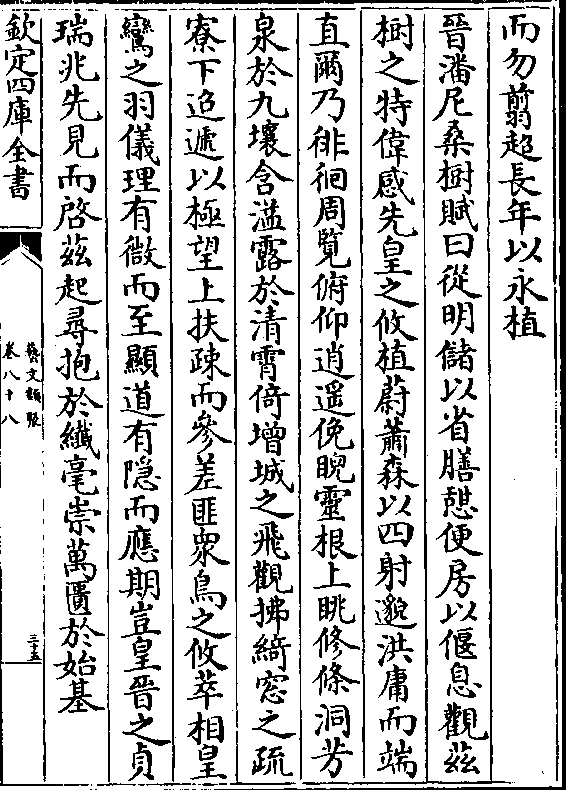 而勿翦超長年以永植
晉潘尼桑樹賦曰從明儲以省膳憇便房以偃息觀茲
樹之特偉感先皇之攸植蔚蕭森以四射邈洪庸而端
直爾乃徘徊周覽俯仰逍遥俛睨靈根上眺修條洞芳
泉於九壤含滋露於清霄倚增城之飛觀拂綺窓之疏
寮下迢遞以極望上扶疎而參差匪衆鳥之攸萃相皇
鸞之羽儀理有微而至顯道有隠而應期豈皇晉之貞
瑞兆先見而啓茲起尋抱於纎毫崇萬匱於始基
欽定四庫全書
藝文類聚
卷八十八
三十五